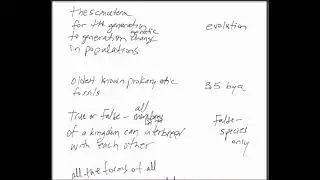 the scm term
for the generation evolution
to generation genetic change
in populations
oldest known prokaryotic 3.5 bya
fossils
True or False - all members
of a kingdom can interbreed False-
with each other species
only
all the forms of all